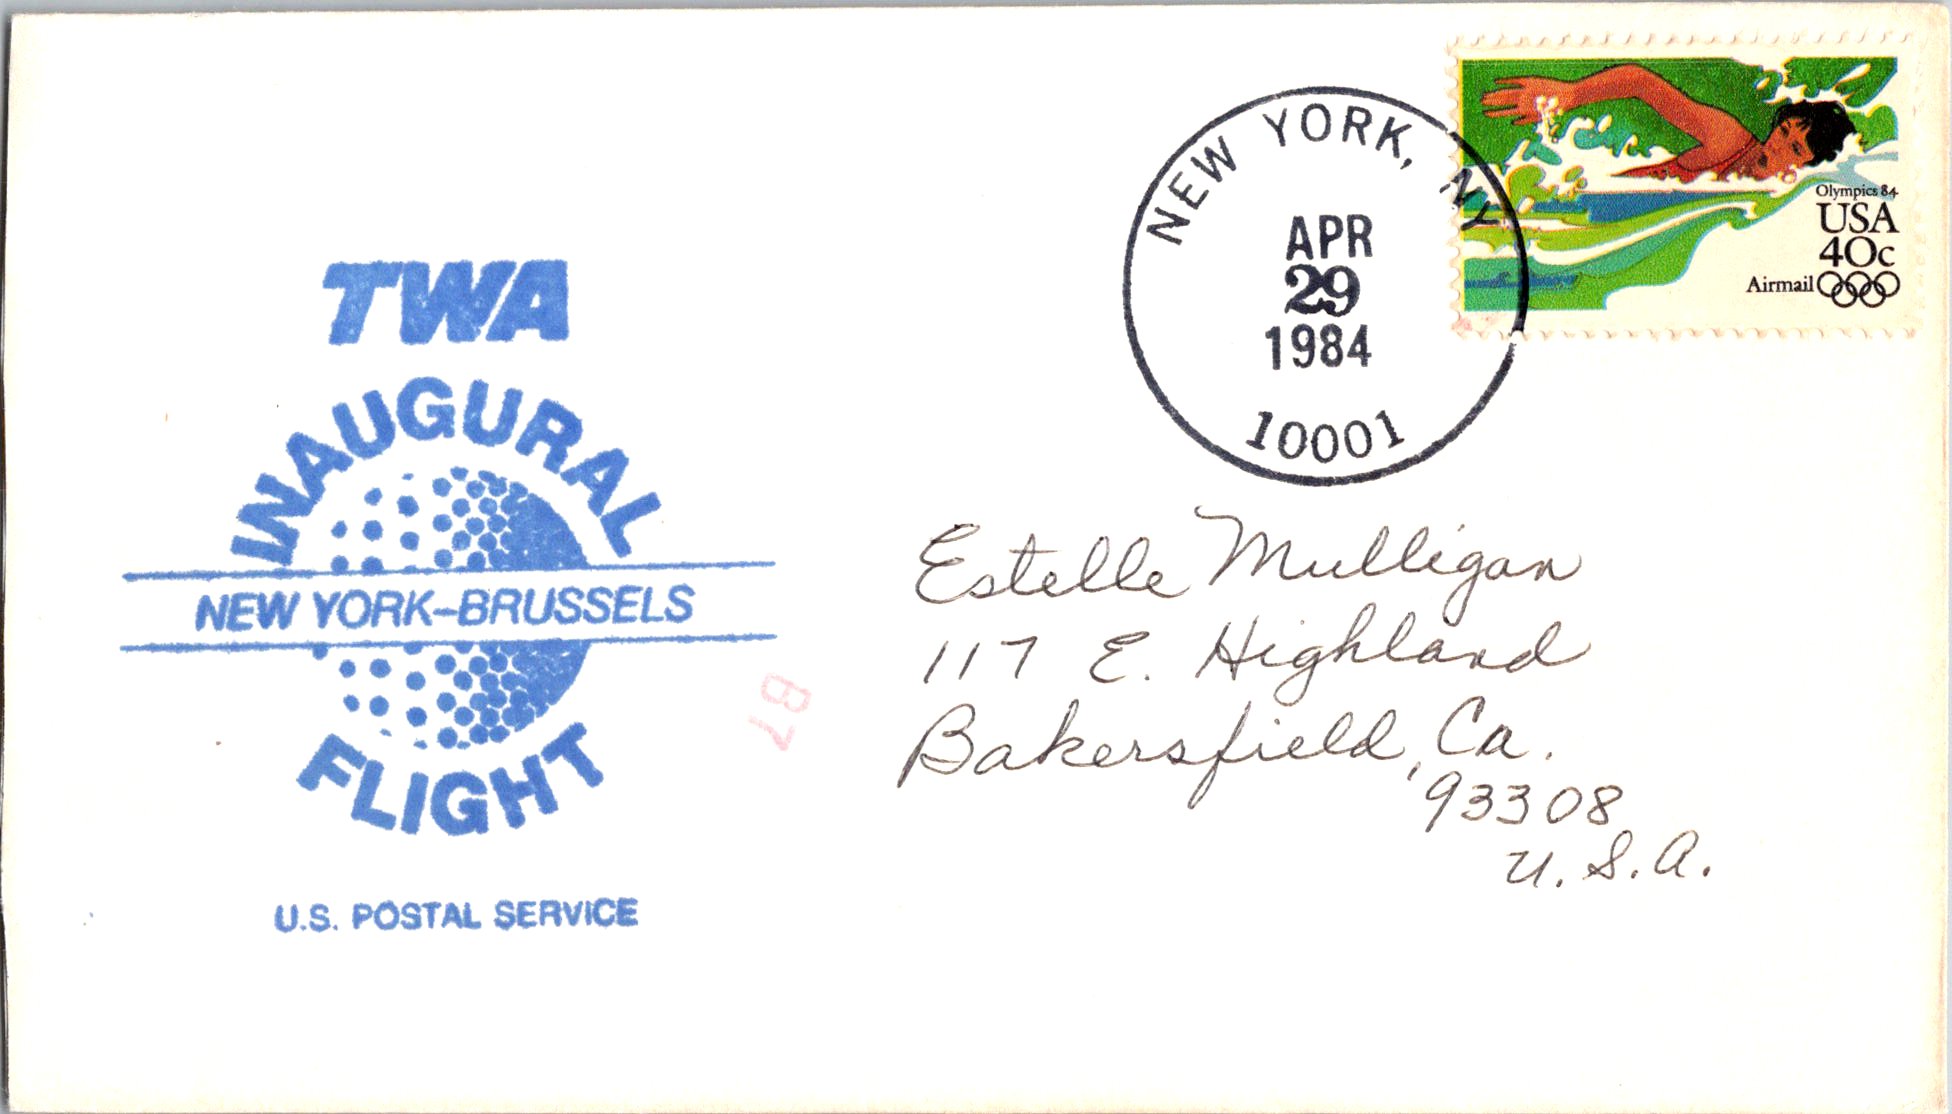 TWA
INAUGURAL
NEW YORK-BRUSSELS
FLIGHT
U.S. POSTAL SERVICE
B7
NEW YORK, NY
APR
29
1984
10001
Olympics 84
USA
40c
Airmail
Estelle Mulligan
117 E. Highland
Bakersfield, Ca.
93308
U.S.A.